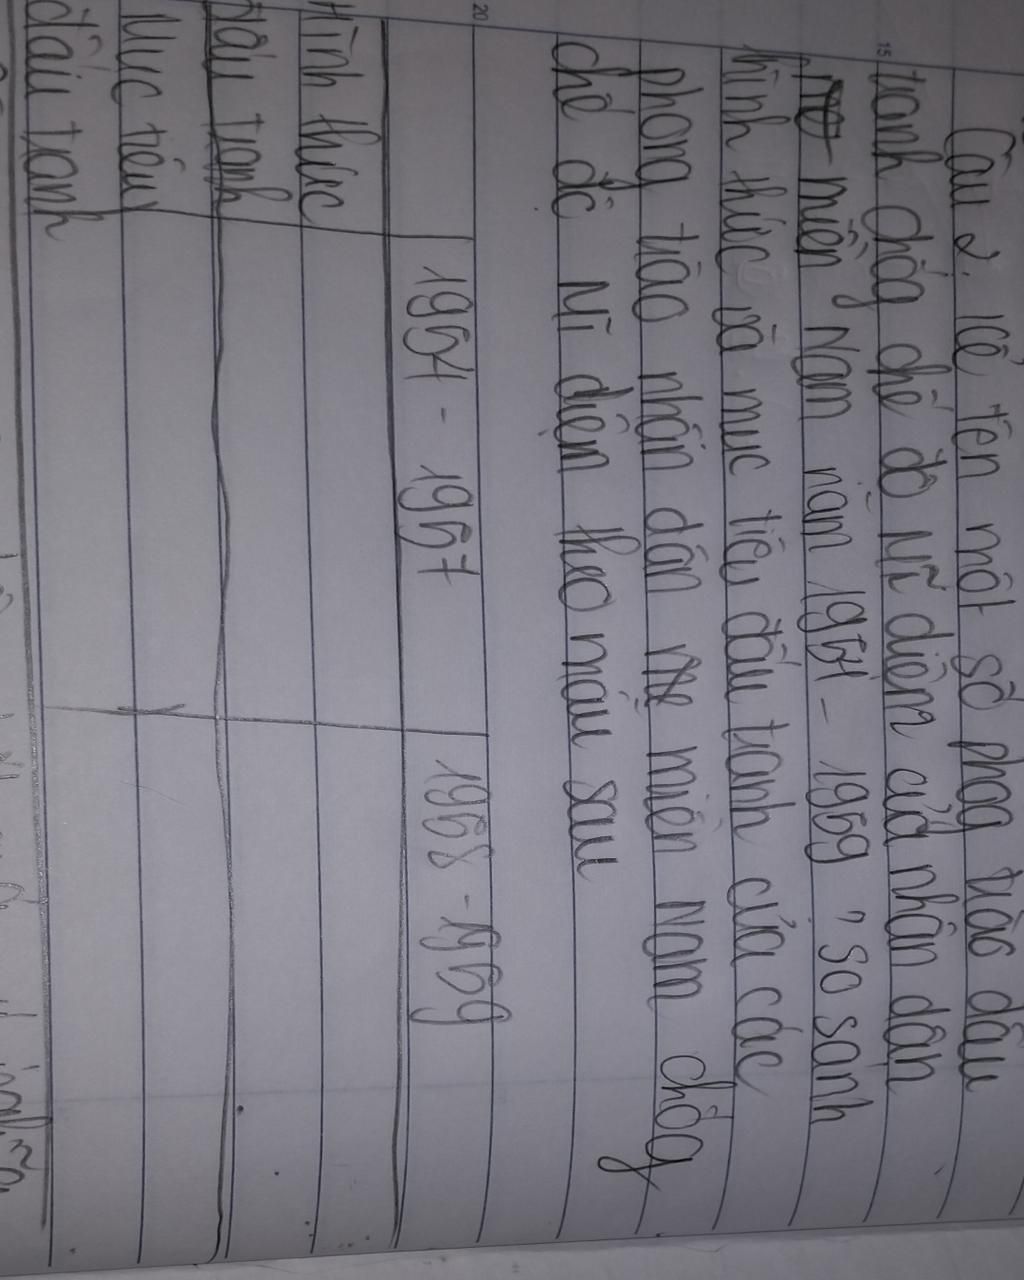 15
20
Câu 2. kể tên một số phog trào đấu
tranh chốg chế độ Mĩ diệm của nhân dân
miền Nam năm 1954 - 1959, so sánh
hình thức và mục tiêu đấu tranh của các
phong trào nhân dân miền Nam chốg
chế độ Mĩ diện theo mẫu sau
1954 - 1957 1958 - 1959
Hình thức
đấu tranh
Mục tiêu
đấu tranh